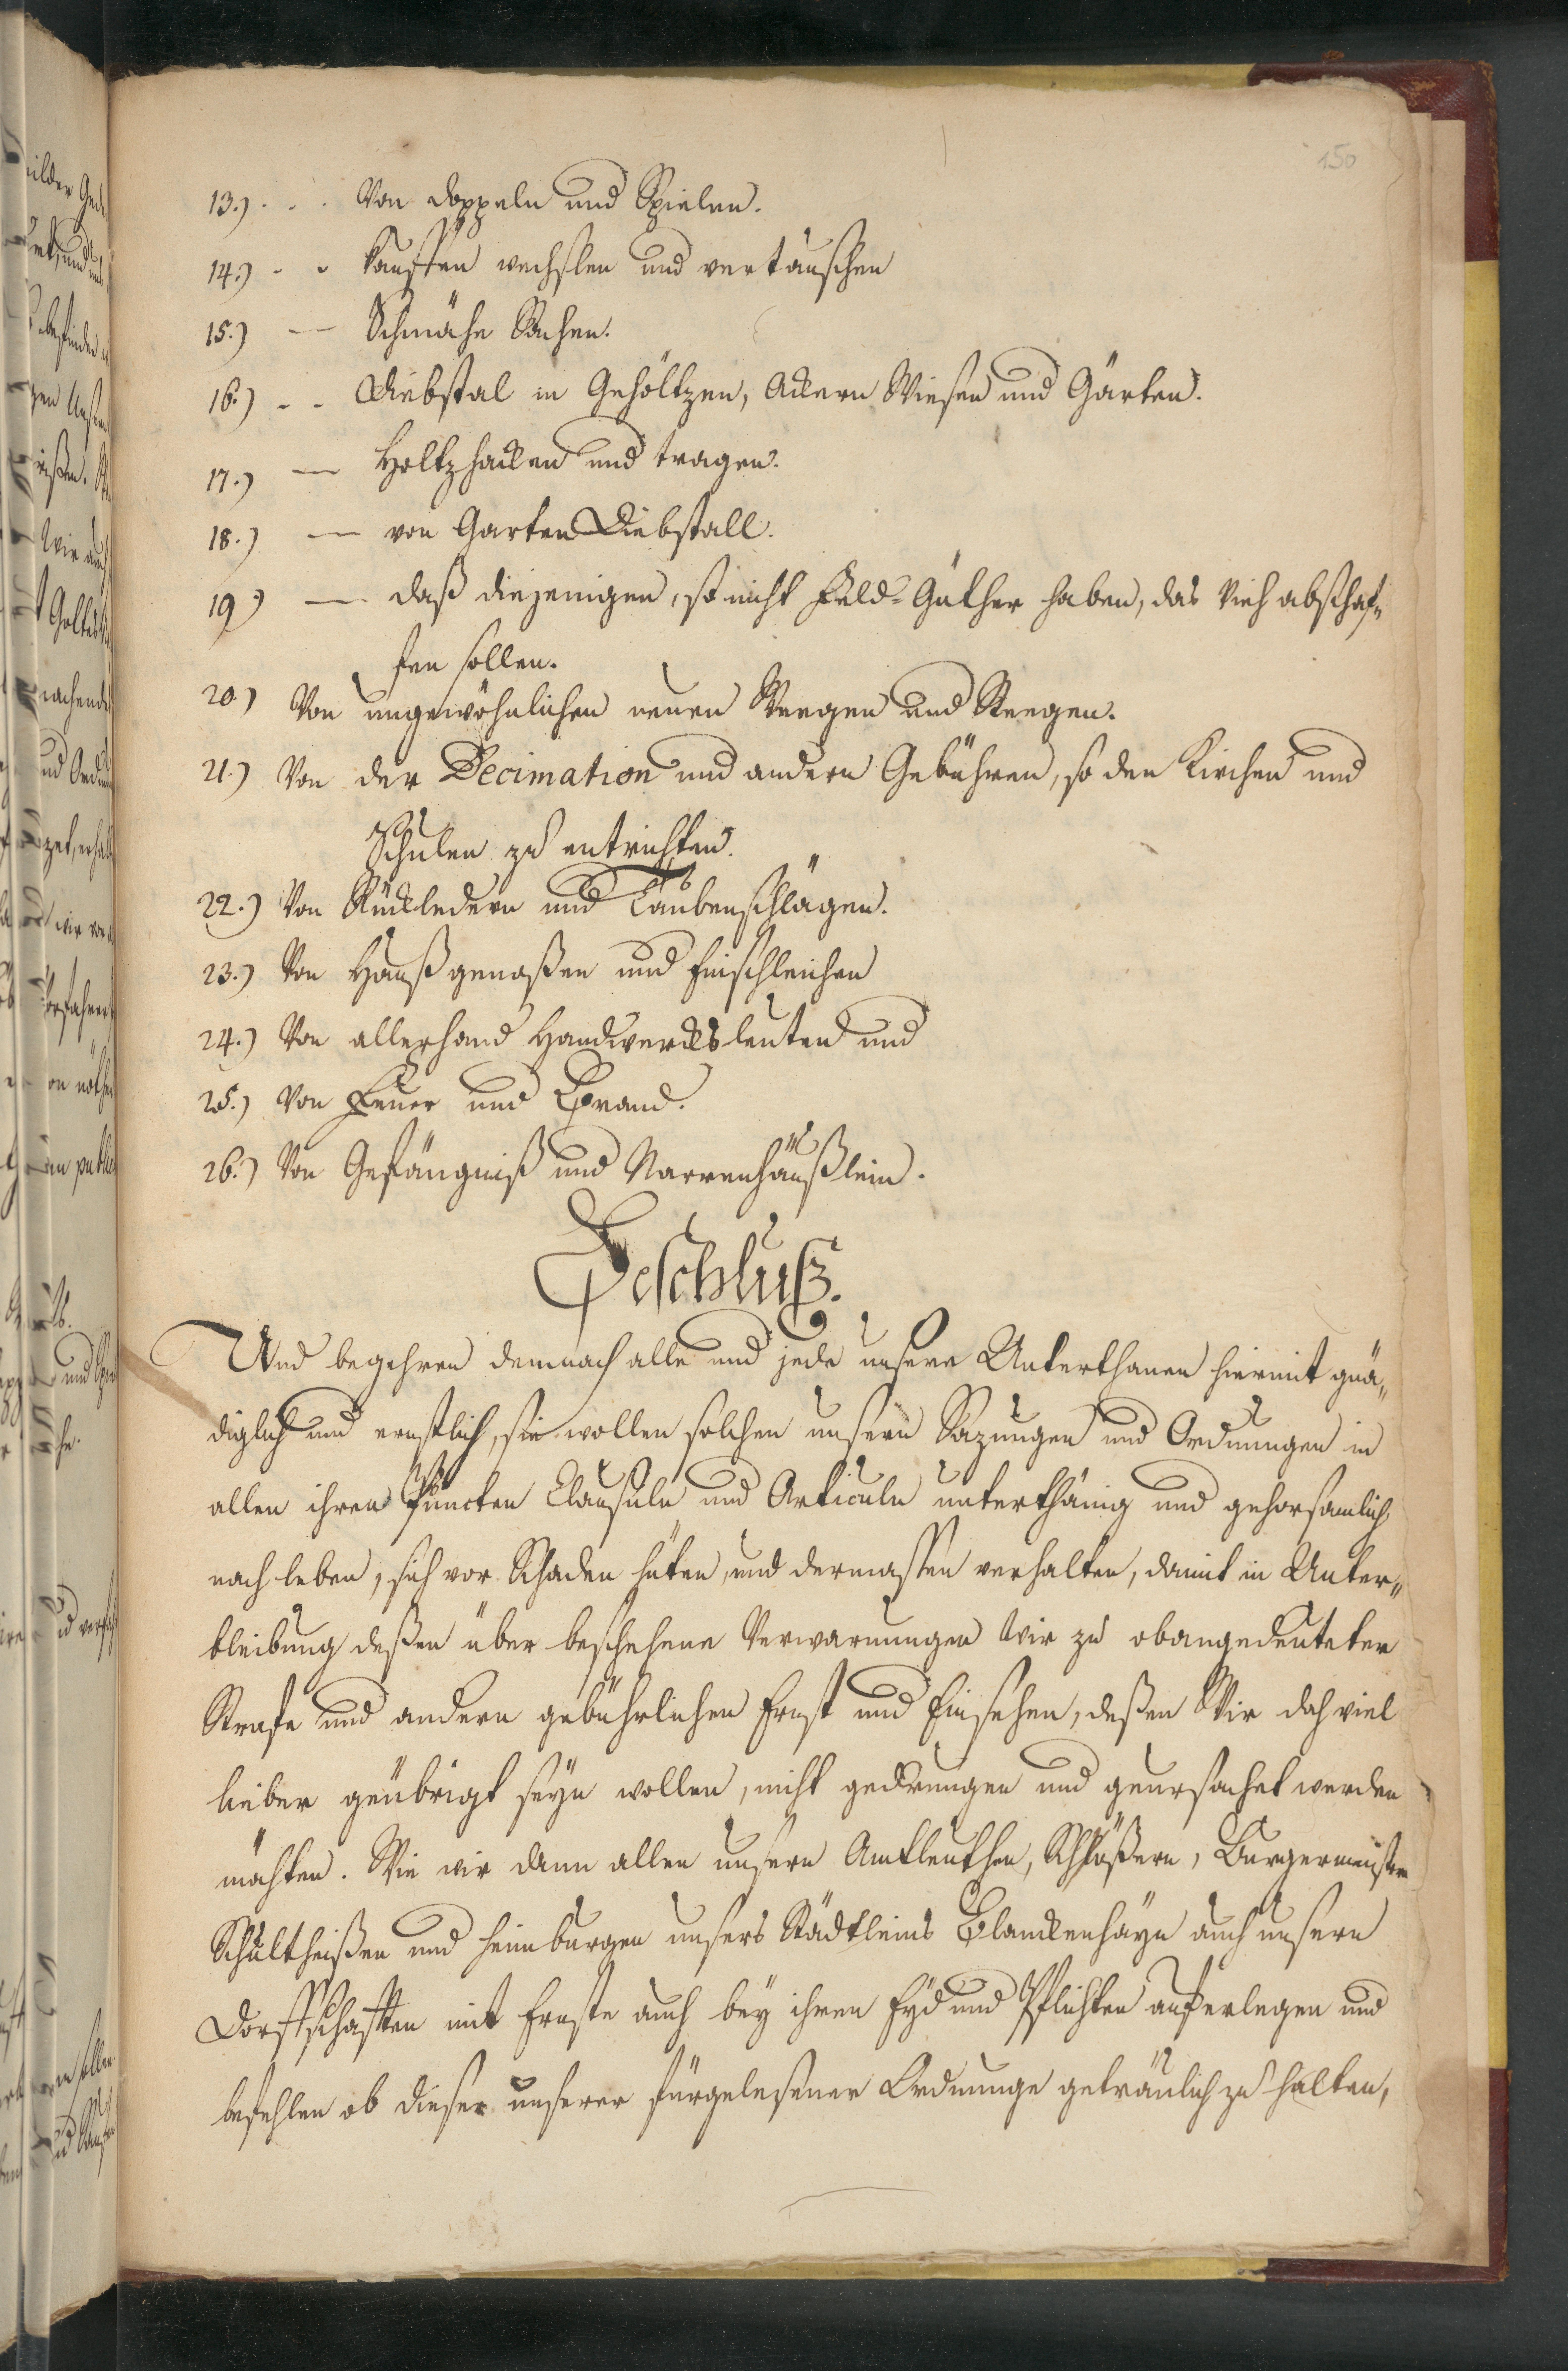 150
13.) . . . Von Doppeln und Spielen.
14.) - - Kauffen wechslen und vertauschen
15.) — Schmähe Sachen.
16.) - - Diebstal in Gehöltzen, Ackern Wiesen und Gärten.
17.) — Holtzhacken und tragen.
18.) — von Garten Diebstall.
19) — daß diejenigen, so nicht Feld-Güther haben, das Vieh abschaf„
fen sollen.
20) Von ungewöhnlichen neuen Weegen und Steegen.
21.) Von der Decimation und andern Gebühren, so den Kirchen und
Schulen zu entrichten.
22.) Von und Taubenschlägen.
23.) Von Haußgenoßen und Einschleichen
24.) Von allerhand Handwercksleuten und
25.) Von Feuer und Brand.
26.) Von Gefängniß und Narrenhäußlein.
Beschluß.
Und begehren demnach alle und jede unsere Unterthanen hiermit gnä„
diglich und ernstlich, sie wollen solchen unsern Sazungen und Ordnungen in
allen ihren Puncten Clausuln und Articuln unterthänig und gehorsamlich
nach leben, sich vor Schaden hüten, und dermassen verhalten, damit in Unter„
bleibung deßen über beschehene Verwarnungen Wir zu obangedeuteter
Strafe und andern gebührlichen Ernst und Einsehen, deßen Wir doch viel
lieber geübrigt seyn wollen, nicht gedrungen und geursachet werden
möchten. Wie wir dann allen unsern Amtleuthen, Schößern, Burgermeistern
Schultheißen und Heimburgen unsers Städtleins Blanckenhayn auch unsern
Dorffschafften mit Ernste auch bey ihren Eyd und Pflichten auferlegen und
befehlen ob dieser unserer fürgelesener Ordnunge getreulich zu halten,